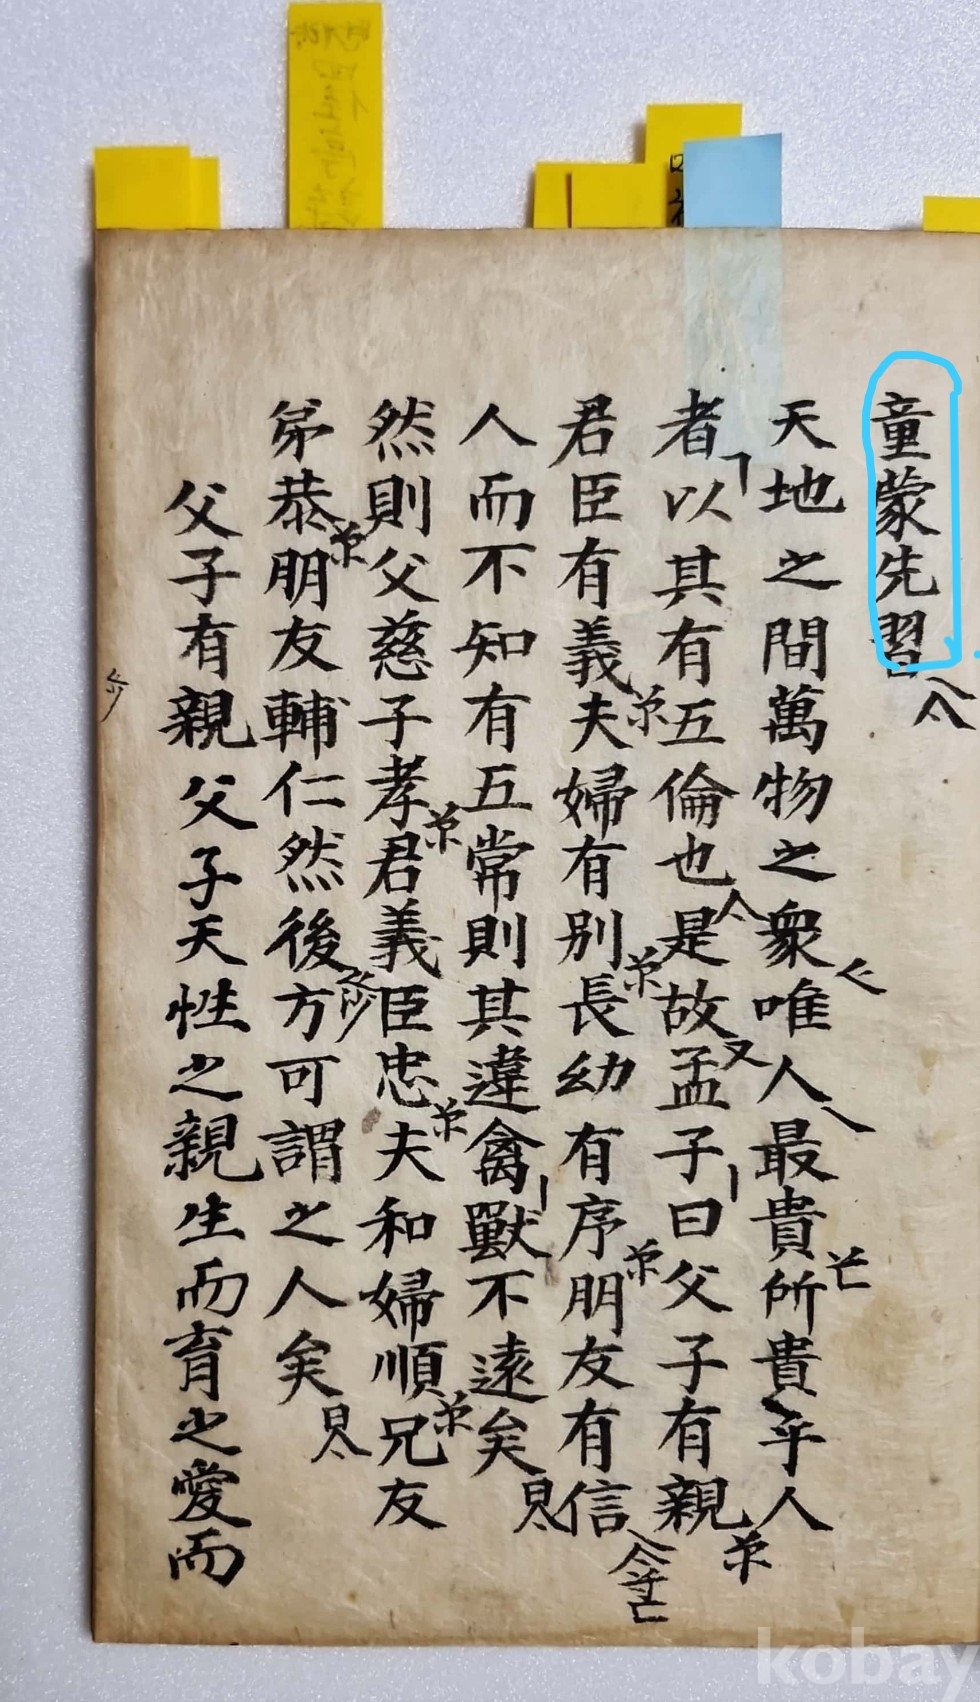 童蒙先習
天地之間萬物之衆唯人最貴所貴乎人
者以其有五倫也是故孟子曰父子有親
君臣有義夫婦有別長幼有序朋友有信
人而不知有五常則其違禽獸不遠矣
然則父慈子孝君義臣忠夫和婦順兄友
弟恭朋友輔仁然後方可謂之人矣
父子有親父子天性之親生而育之愛而
kobay